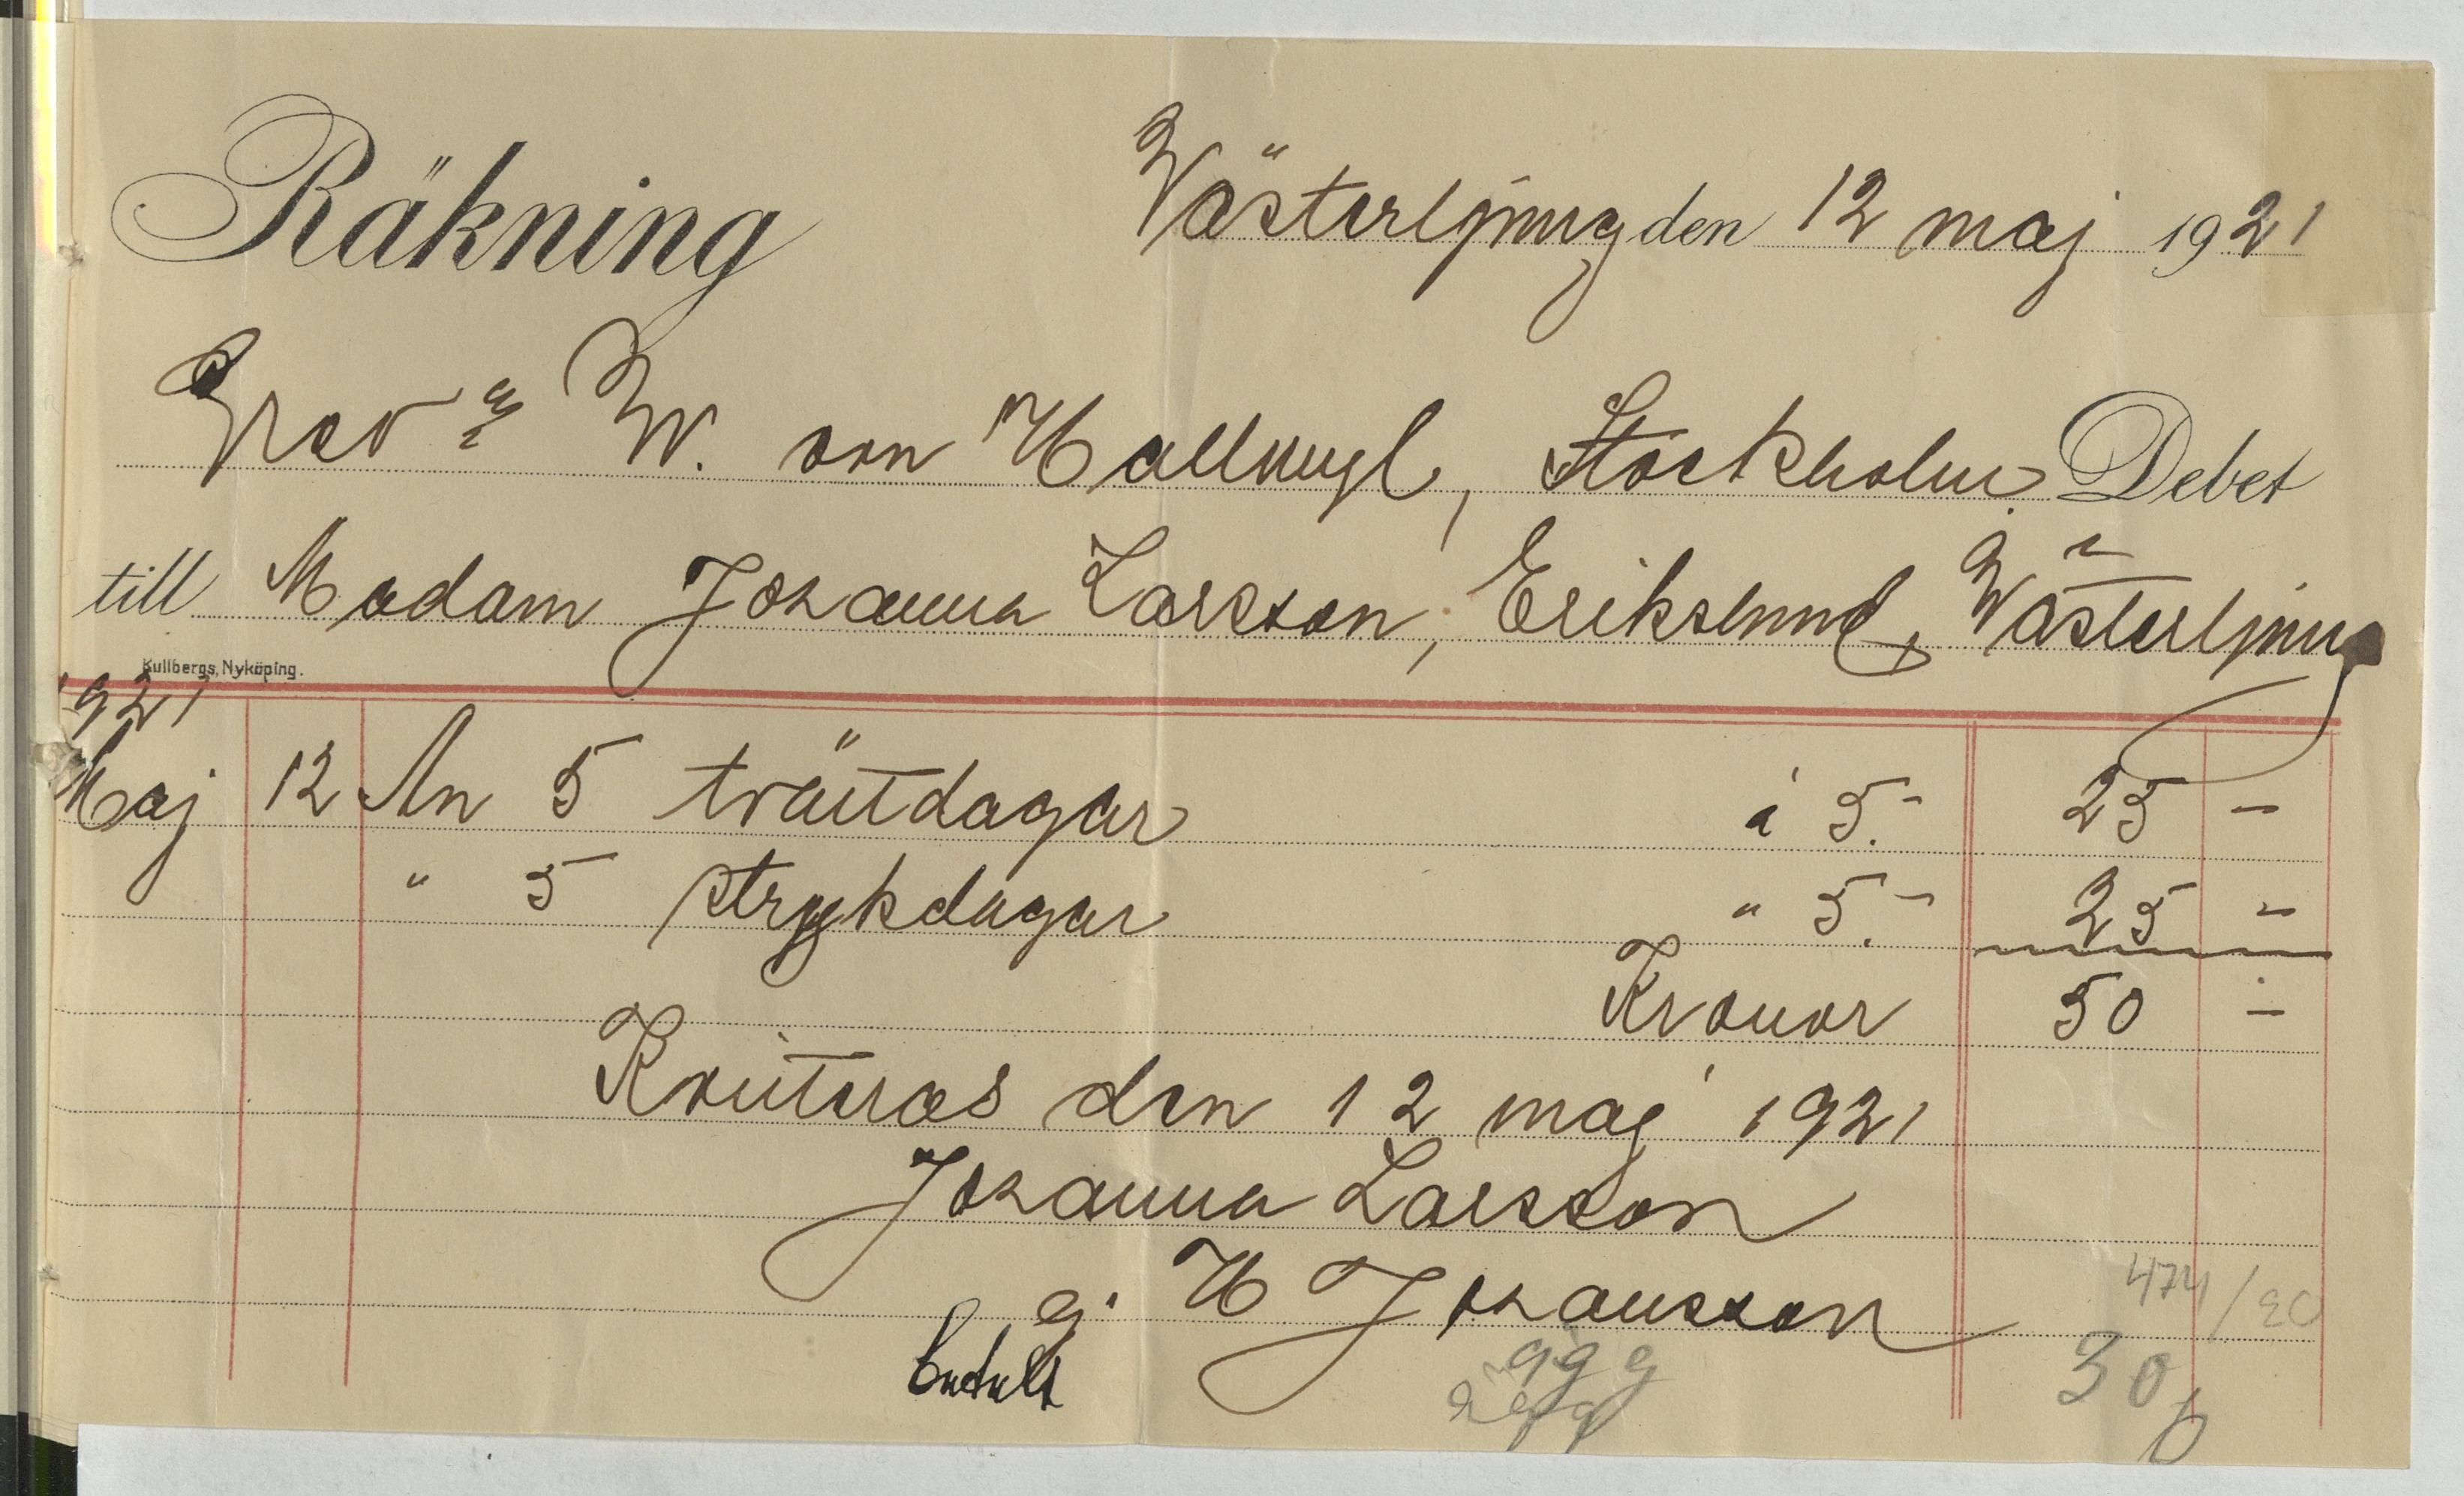 Räkning Västerljung den 12 maj 1921
Grev W. von Hallwyl, Stockholm. Debet
till Madam Johanna Larsson, Erikslund, Västerljung
Kullbergs, Nyköping.
1921
Maj 12 An 5 tvättdagar à 5.- 25 -
" 5 strykdagar " 5.- 25 -
Kronor 50 -
Kvitteras den 12 maj 1921
Johanna Larsson
gj. H Johansson
betalt